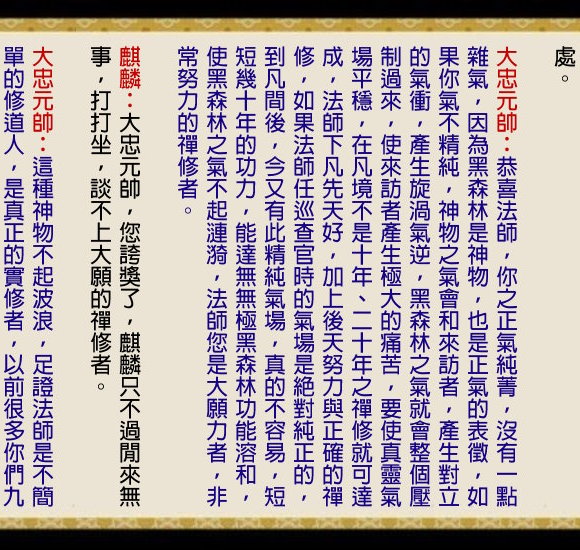 處。
大忠元帥：恭喜法師，你之正氣純菁，沒有一點
雜氣，因為黑森林是神物，也是正氣的表徵，如
果你氣不精純，神物之氣會和來訪者，產生對立
的氣衝，產生旋渦氣逆，黑森林之氣就會整個壓
制過來，使來訪者產生極大的痛苦，要使真靈氣
場平穩，在凡境不是十年、二十年之禪修就可達
成，法師下凡先天好，加上後天努力與正確的禪
修，如果法師任巡查官時的氣場是絕對純正的，
到凡間後，今又有此精純氣場，真的不容易，短
短幾十年的功力，能達無無極黑森林功能溶和，
使黑森林之氣不起漣漪，法師您是大願力者，非
常努力的禪修者。
麒麟：大忠元帥，您誇獎了，麒麟只不過閒來無
事，打打坐，談不上大願的禪修者。
大忠元帥：這種神物不起波浪，足證法師是不簡
單的修道人，是真正的實修者，以前很多你們九